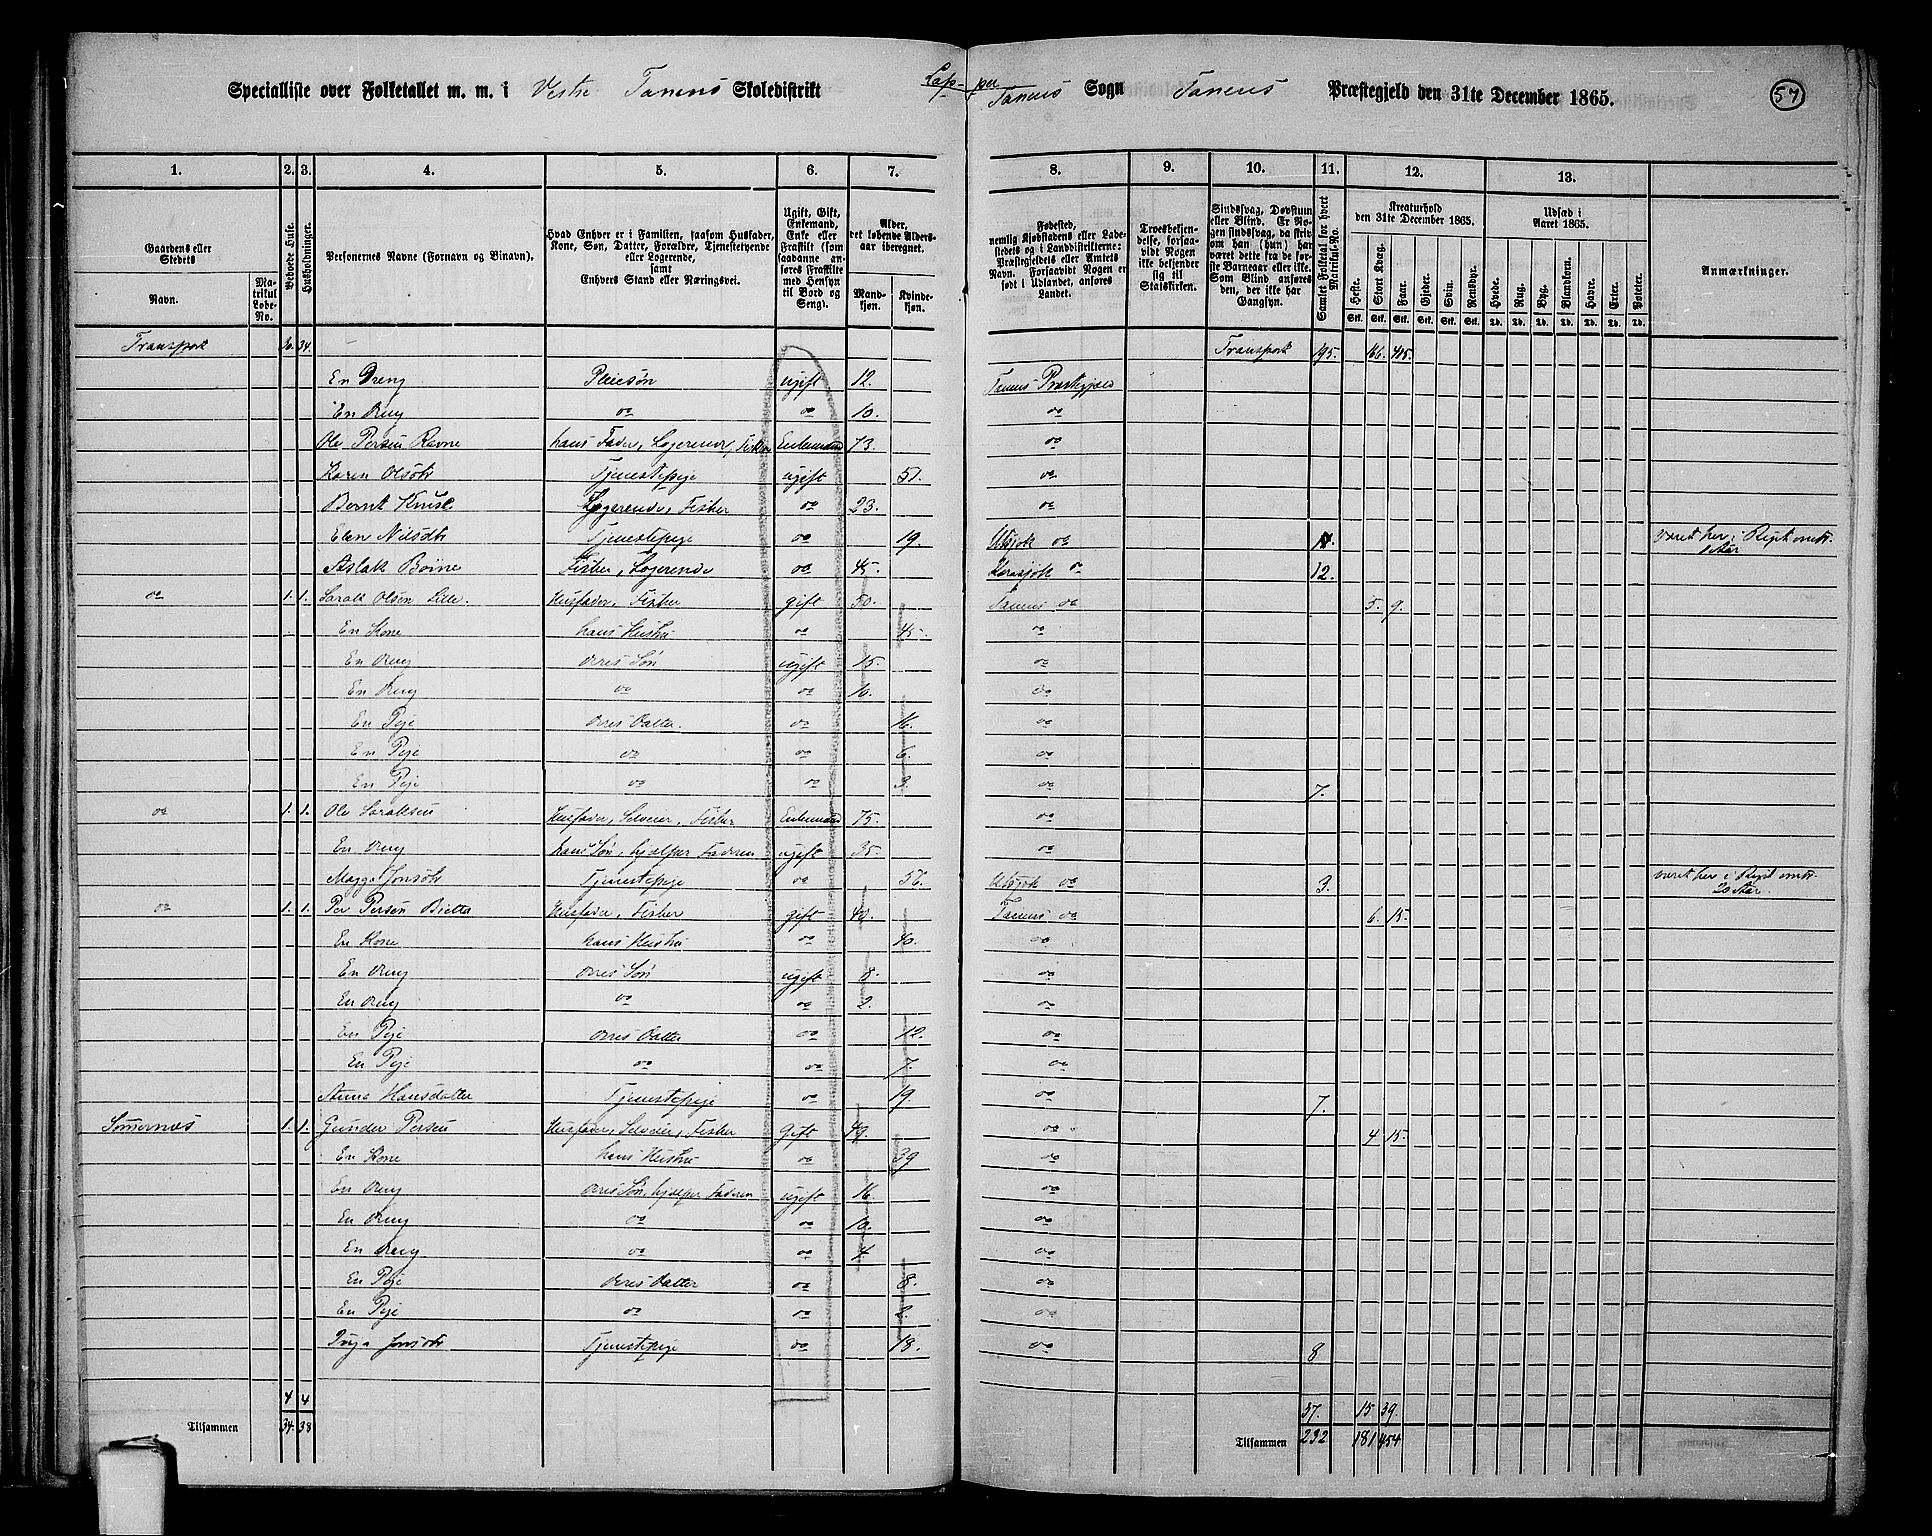 Specialliste over Folketallet m. m. i Vestre Tanens Skoledistrikt Lap- per Tanens Sogn Tanens Præstegjeld den 31te December 1865. 57
1. 2. 3. 4. 5. 6. 7. 8. 9. 10. 11. 12. 13.
Gaardens eller Stedets
Navn. Matrikul Løbe-No.
Beboede Huse.
Husholdninger.
Personernes Navne (Fornavn og Binavn).
Hvad Enhver er i Familien, saasom Husfader, Kone, Søn, Datter, Forældre, Tjenestetyende eller Logerende, samt Enhvers Stand eller Næringsvei.
Ugift, Gift, Enkemand, Enke eller Fraskilt (som saadanne anføres Fraskilte med Hensyn til Bord og Seng).
Alder, det løbende Alders-aar iberegnet.
Mandkjøn. Kvindekjøn.
Fødested, nemlig Kjøbstadens eller Ladestedets og i Landdistrikterne: Præstegjeldets eller Amtets Navn. Forsaavidt Nogen er født i Udlandet, anføres Landet.
Troesbekjendelse, forsaavidt Nogen ikke bekjender sig til Statskirken.
Sindssvag, Døvstum eller Blind. Er Nogen sindssvag, da skrives om han (hun) har været dette fra de første Barneaar eller ikke. Som Blind anføres den, der ikke har Gangsyn.
Samlet Folketal for hvert Matrikul-No.
Kreaturhold den 31te December 1865.
Heste. Stort Kvæg. Faar. Gjeder. Svin. Rensdyr.
Stk. Stk. Stk. Stk. Stk. Stk.
Udsæd i Aaret 1865.
Hvede. Rug. Byg. Blandkorn. Havre. Erter. Poteter.
Td. Td. Td. Td. Td. Td. Td.
Anmærkninger.
Transport 30. 34. Transport 195. 166. 415.
En Dreng Pleiesøn ugift 12. Tanens Præstegjæld
En Dreng do do 10. do
Ole Persen Ravne hans Fader, Logerende, Fisker Enkemand 73. do
Karen Olsdtr Tjenestepige ugift 51. do
Bernt Logerende, Fisker do 23. do
Elen Nilsdtr Tjenestepige do 19. Utsjok do været her i Rigt omtr. 1 Aar
Aslak Boine Fisker, Logerende do 45. Karasjok do 12.
do 1. 1. Sarak Olsen Lille. Husfader, Fisker gift 50. Tanens do 5. 9.
En Kone hans Hustru do 45. do
En Dreng deres Søn ugift 15. do
En Dreng do do 10. do
En Pige deres Datter. do 16. do
En Pige do do 6. do
En Pige do do 3. do 7.
do 1. 1. Ole Saraksen Husfader, Selveier, Fisker Enkemand 75. do
En Dreng hans Søn, hjælper Faderen ugift 35. do
Magga Jonsdtr Tjenestepige do 56. Utsjok do 3. været her i Rigt omtr. 20 Aar.
do 1. 1. Per Persen Bietta Husfader, Fisker gift 40. Tanens do 6. 15.
En Kone hans Hustru do 40. do
En Dreng deres Søn ugift 8. do
En Dreng do do 2. do
En Pige deres Datter do 12. do
En Pige do do 7. do
Anna Hansdatter Tjenestepige do 19. do 7.
Smernæs 1. 1. Gunder Persen Husfader, Selveier, Fisker Gift 49. do 4 15.
En Kone hans Hustru do 39 do
En Dreng deres Søn, hjælper Faderen ugift 16. do
En Dreng do do 10. do
En Dreng do do 4. do
En Pige deres Datter do 8. do
En Pige do do 2. do
Inga Jonsdtr Tjenestepige do 18. do 8
4 4 37. 15 39.
Tilsammen 34. 38 Tilsammen 232 181 454